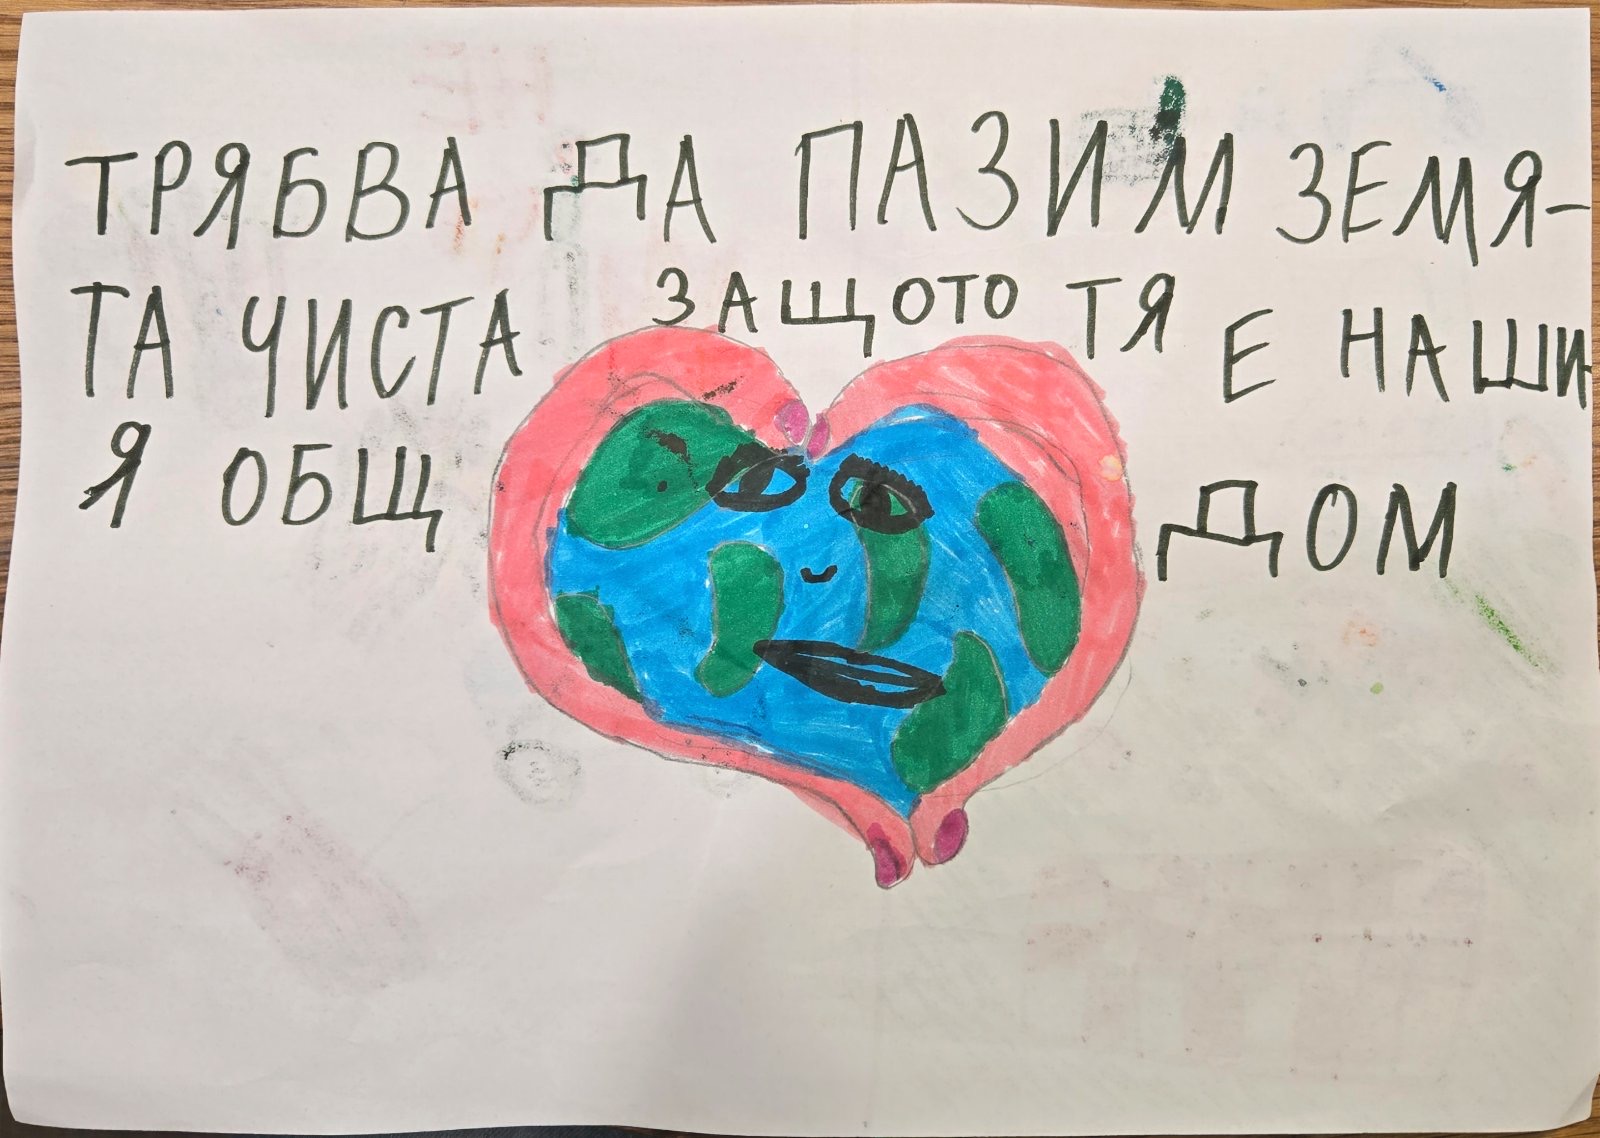 ТРЯБВА ДА ПАЗИМ ЗЕМЯ-
ТА ЧИСТА ЗАЩОТО ТЯ Е НАШИ-
Я ОБЩ ДОМ